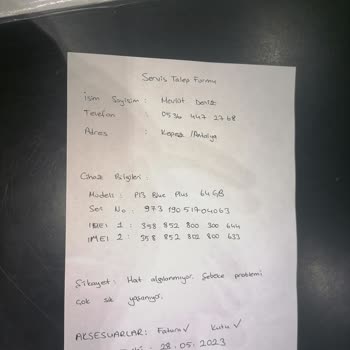 Servis Talep Formu
İsim Soyisim : Mevlüt Deniz
Telefon : 0536 447 27 68
Adres : Kepez / Antalya
Cihaz Bilgileri :
Modeli : P13 Blue Plus 64 GB
Seri No : 973 19051704063
IMEI 1 : 358 852 800 300 644
IMEI 2 : 358 852 802 800 633
Şikayet : Hat algılanmıyor. Şebeke problemi
çok sık yaşanıyor.
AKSESUARLAR : Fatura ✓ Kutu ✓
: 28.05.2023